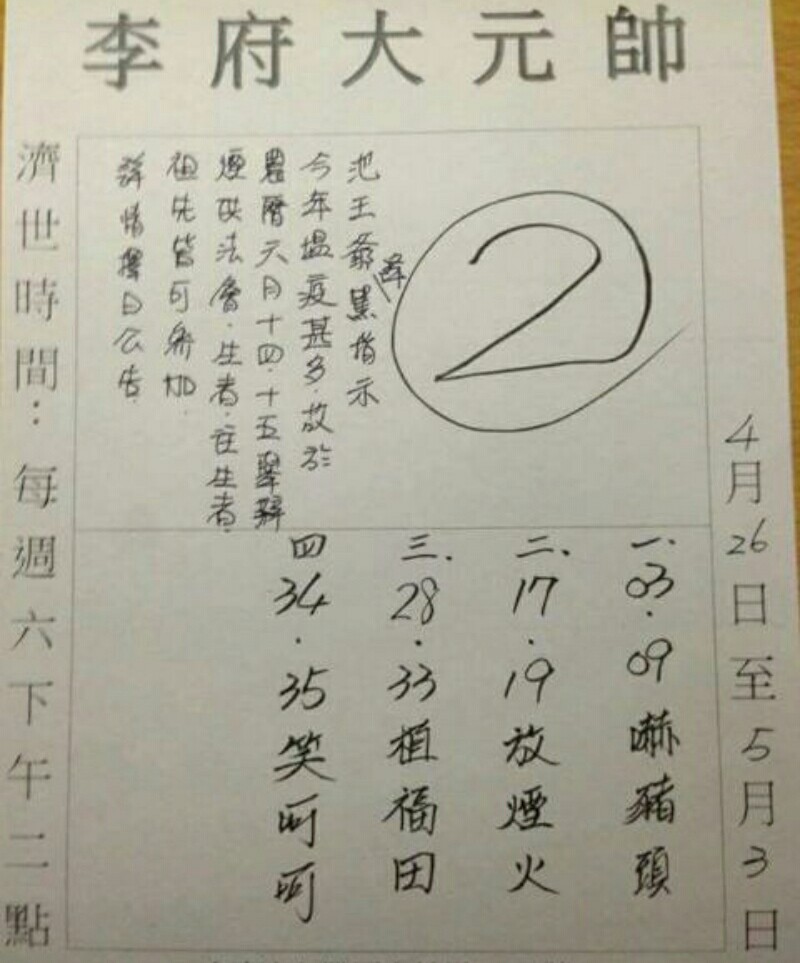 李府大元帥
4月26日至5月3日
2
池王爺降黑指示
今年塭疫甚多.故於
農曆六月十四.十五舉辦
煙供法會.生者.往生者.
祖先皆可參加.
詳情擇日公告.
一.03.09嚇豬頭
二.17.19放煙火
三.28.33植福田
四34.35笑呵呵
濟世時間：每週六下午二點